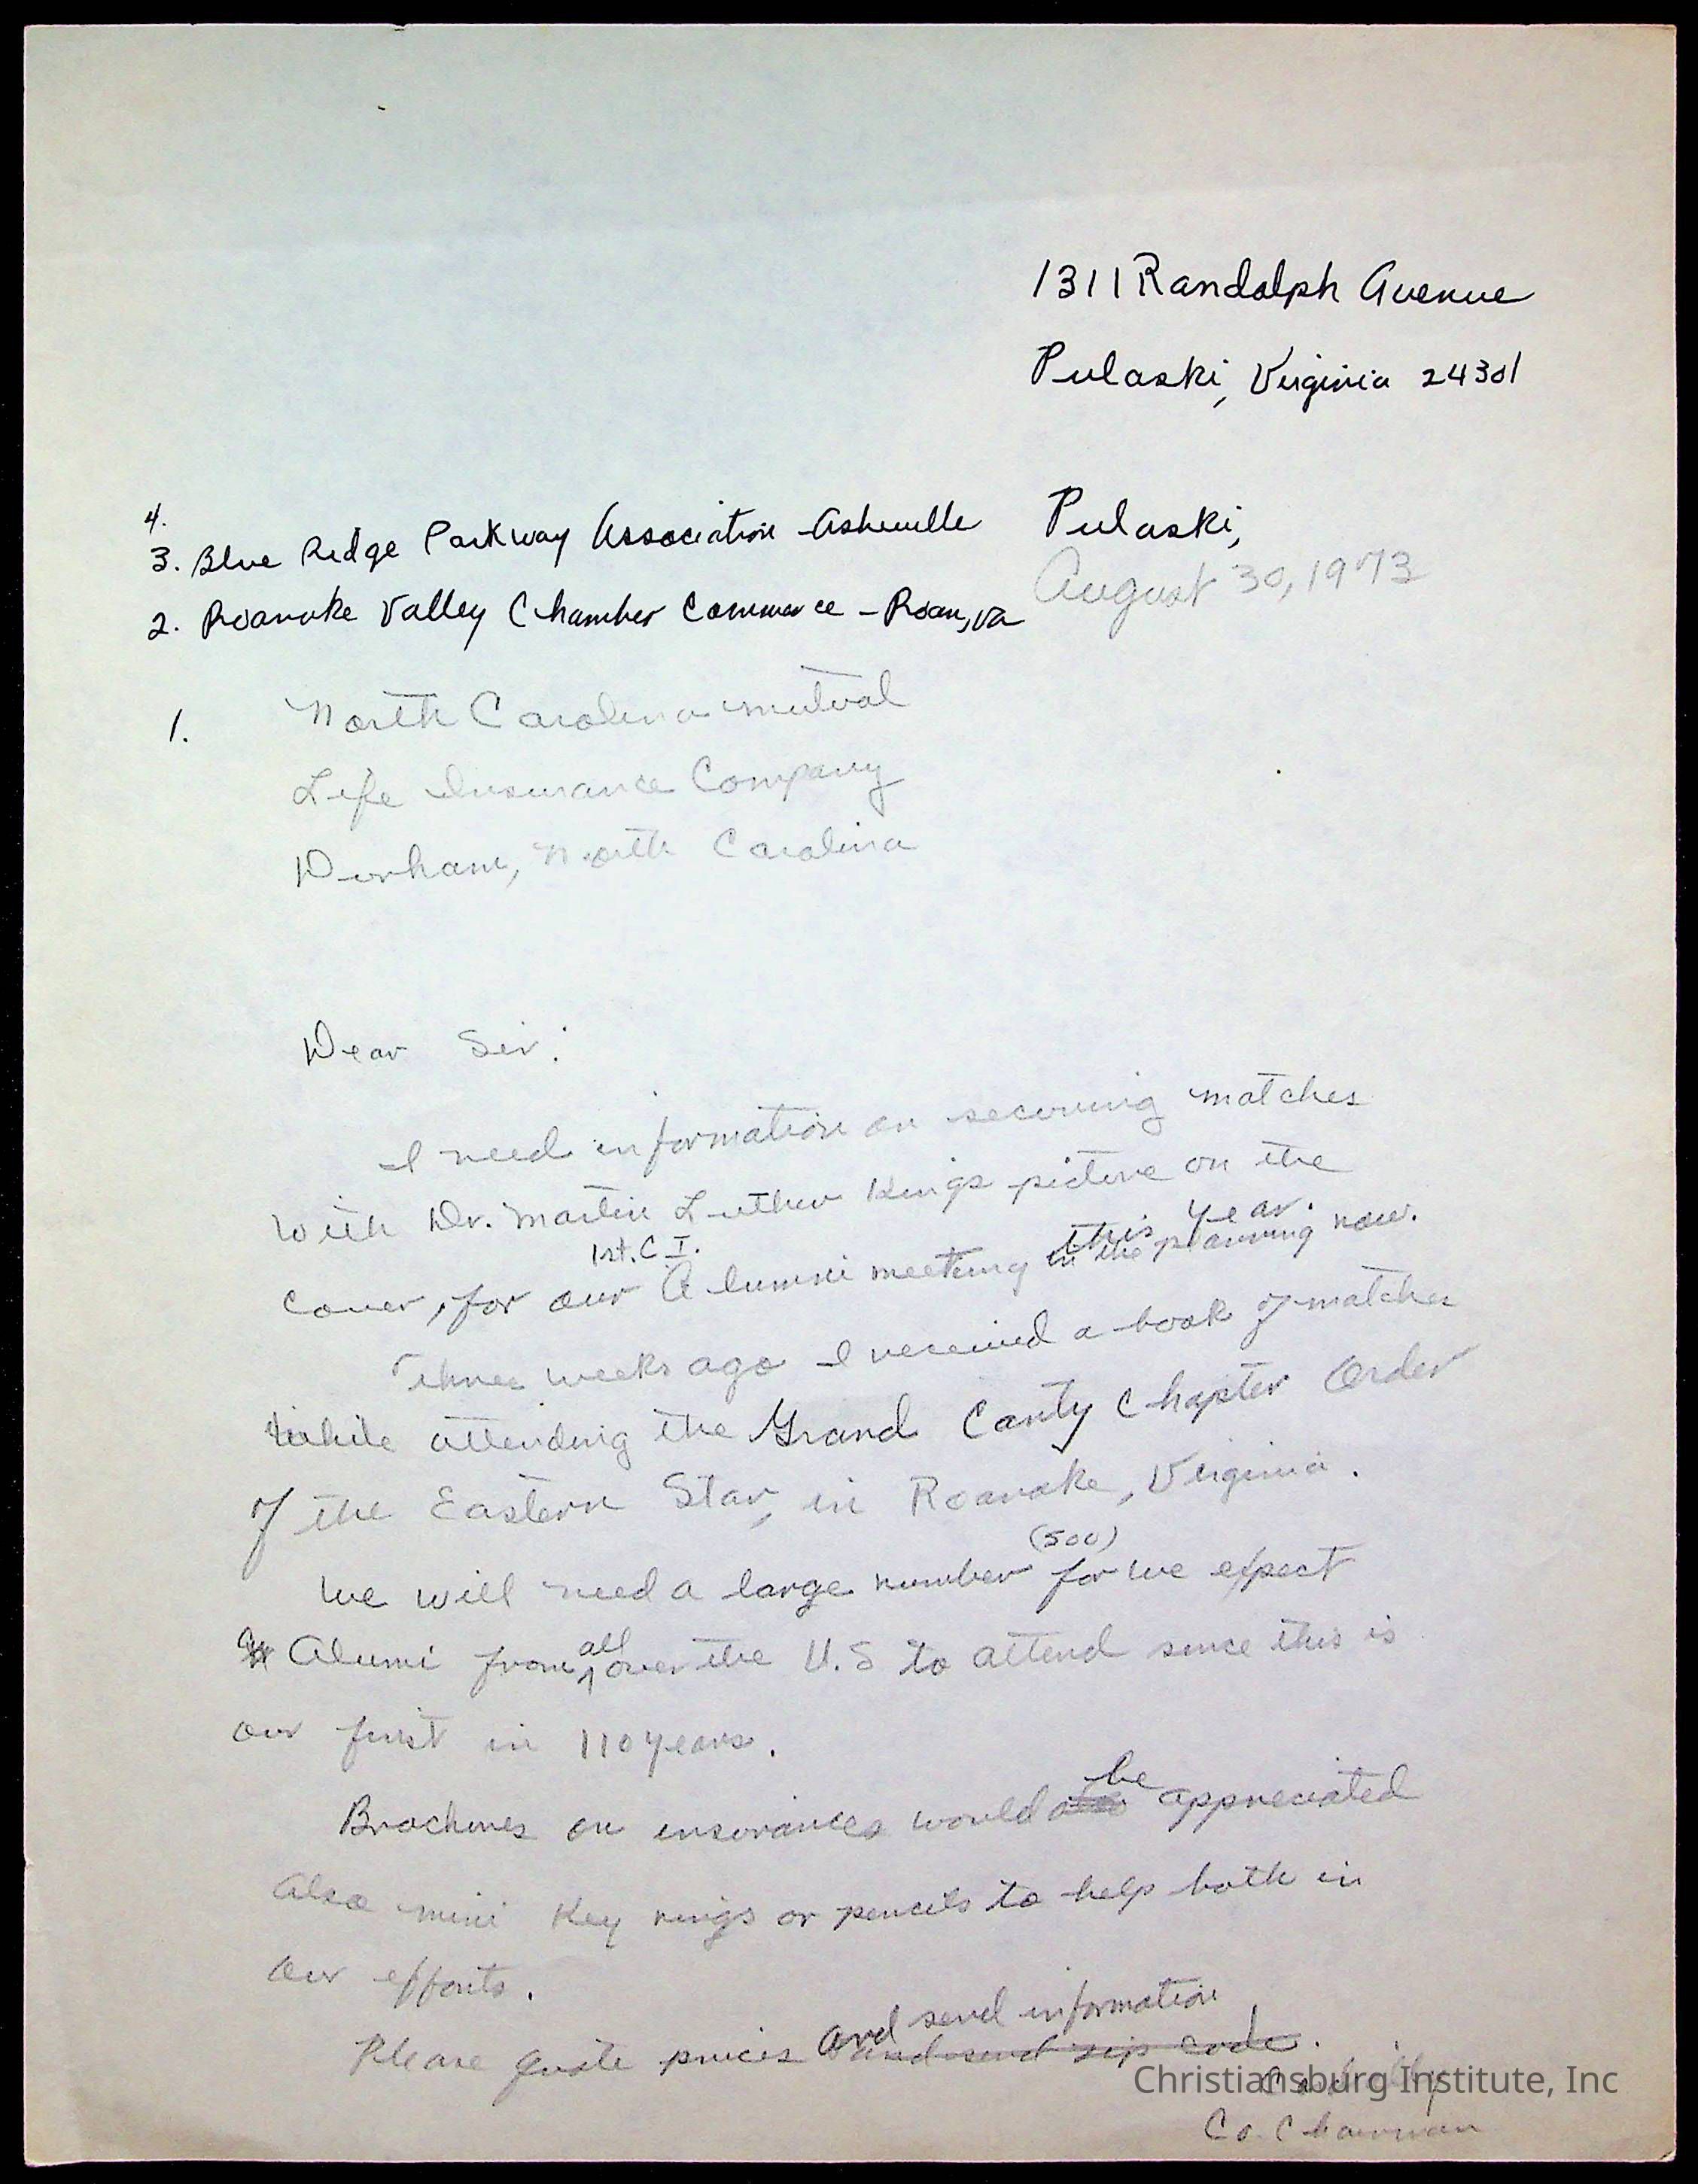 1311 Randolph Avenue
Pulaski, Virginia 24301
Pulaski,
August 30, 1973
4.
3. Blue Ridge Parkway Association - Asheville
2. Roanoke Valley Chamber Commerce - Roan, Va
1. North Carolina mutual
Life Insurance Company
Durham, North Carolina
Dear Sir:
I need information on securing matches
with Dr. Martin Luther Kings picture on the
this year.
cover, for our 1st. C I. Alumni meeting in the planning now.
Three weeks ago I received a book of matches
while attending the Grand Canty Chapter Order
of the Eastern Star, in Roanoke, Virginia.
We will need a large number (500) for we expect
Alumi from all over the U.S to attend since this is
our first in 110 years.
Brochures on insurances would be appreciated
Also mini Key rings or pencils to help both in
our efforts.
Please quote prices and send information
and send zip code.
Christiansburg Institute, Inc
Co. Chairman